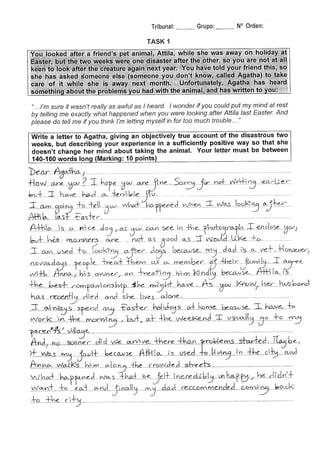 Tribunal: ______ Grupo: ______ Nº Orden:
TASK 1
You looked after a friend's pet animal, Attila, while she was away on holiday at
Easter, but the two weeks were one disaster after the other, so you are not at all
keen to look after the creature again next year. You have told your friend this, so
she has asked someone else (someone you don't know, called Agatha) to take
care of it while she is away next month. Unfortunately, Agatha has heard
something about the problems you had with the animal, and has written to you:
"...I'm sure it wasn't really as awful as I heard. I wonder if you could put my mind at rest
by telling me exactly what happened when you were looking after Attila last Easter. And
please do tell me if you think I'm letting myself in for too much trouble..."
Write a letter to Agatha, giving an objectively true account of the disastrous two
weeks, but describing your experience in a sufficiently positive way so that she
doesn't change her mind about taking the animal. Your letter must be between
140-160 words long (Marking: 10 points)
Dear Agatha,
How are you? I hope you are fine. Sorry for not writing earlier
but I have had a terrible flu.
I am going to tell you what happened when I was looking after
Attila last Easter.
Attila is a nice dog, as you can see in the photograph I enclose you,
but his manners are not as good as I would like to.
I am used to looking after dogs because my dad is a vet. However,
nowadays people treat them as a member of their family. I agree
with Anna, his owner, on treating him kindly because Attila is
the best companionship she might have. As you know, her husband
has recently died and she lives alone.
I always spend my Easter holidays at home because I have to
work in the morning, but, at the weekend I usually go to my
parents' village.
And, no sooner did we arrive there than problems started. Maybe,
it was my fault because Attila is used to living in the city and
Anna walks him along the crowded streets.
What happened was that he felt incredibly unhappy, he didn't
want to eat and finally my dad reccommended coming back
to the city.